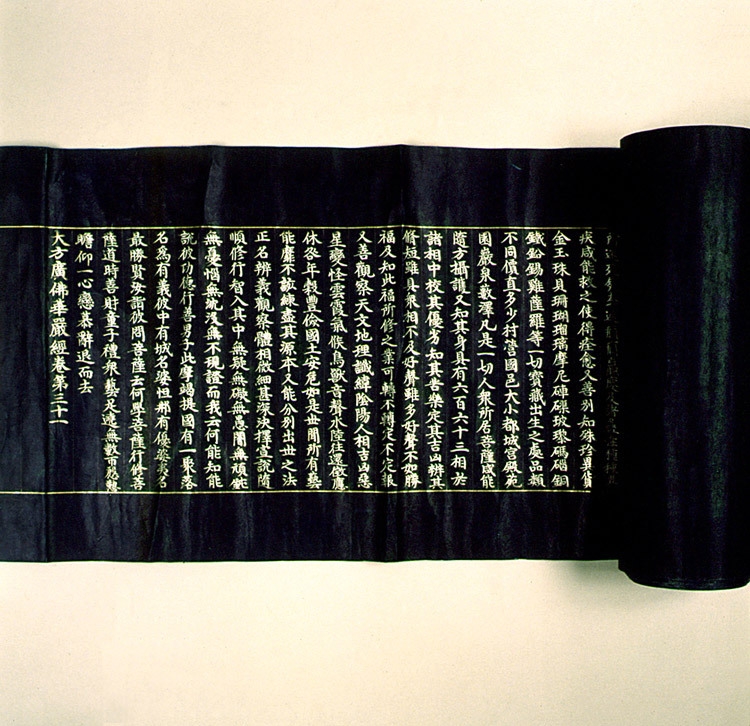 疾咸能救之使得痊愈又善別知殊珍異寶
金玉珠貝珊瑚瑠璃摩尼硨磲玻瓈碼碯銅
鐵鈆錫雞薩羅等一切寶藏出生之處品類
不同價直多少村營國邑大小都城宮殿苑
園巖泉藪澤凡是一切人眾所居菩薩咸能
隨方攝護又知其身具有六百六十三相於
諸相中校其優劣知其苦樂定其吉凶辨其
修短雖具眾相不及好聲雖多好聲不如勝
福及知此福所修之業可轉不轉定不定報
又善觀察天文地理讖緯陰陽人相吉凶惡
星變怪雲霞氣候鳥獸音聲水陸往還徵應
休咎年穀豐儉國土安危如是世間所有藝
能靡不該練盡其源本又能分別出世之法
正名辨義觀察體相微細甚深決擇宣說隨
順修行智入其中無疑無礙無愚闇無頑鈍
無憂惱無沈沒無不現證而我云何能知能
說彼功德行善男子此摩竭提國有一聚落
名為有義彼中有城名婆怛那有優婆夷名
最勝賢汝詣彼問菩薩云何學菩薩行修菩
薩道時善財童子禮眾藝足遶無數帀慇懃
瞻仰一心戀慕辭退而去
大方廣佛華嚴經卷第三十一